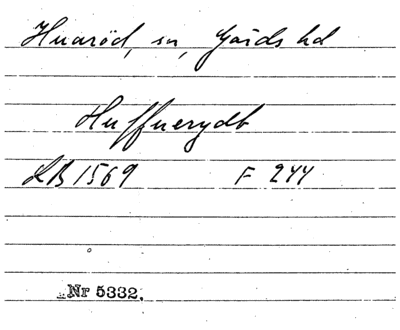 Huaröd, sn, Gärds hd
Huffuerydt
LB 1569 F 244
Nr 5332.